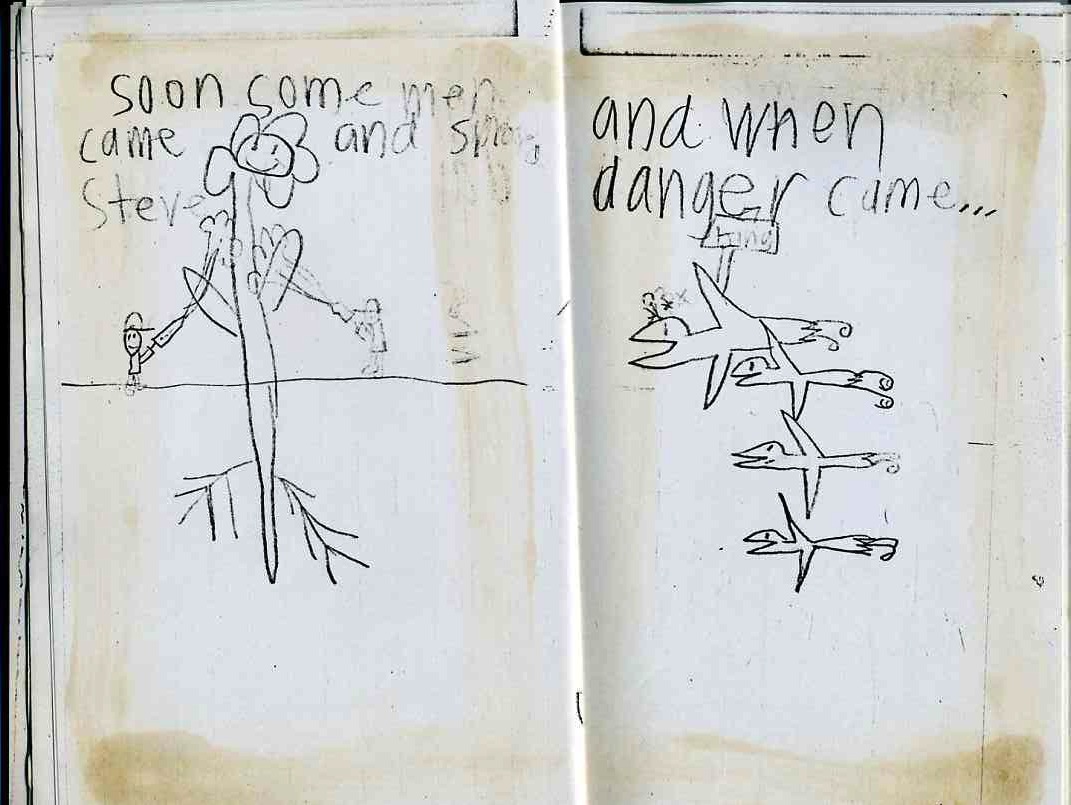 soon some men
came and
Steve
and when
danger came...